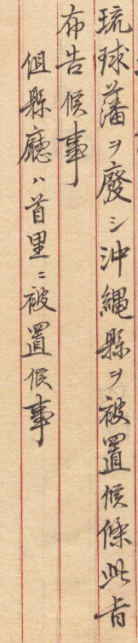 琉球藩ヲ廢シ沖縄縣ヲ被置候條此旨
布告候事
但縣廳ハ首里ニ被置候事